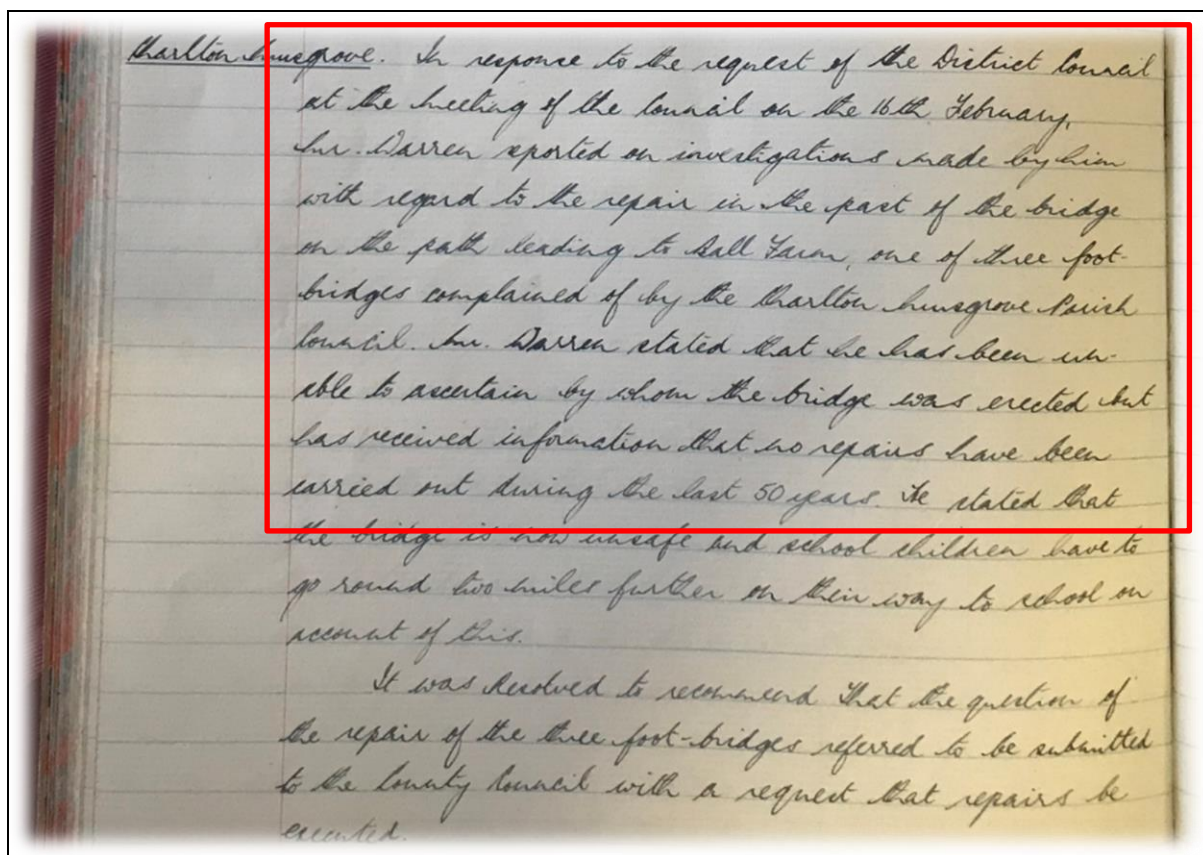 Charlton Musgrove. In response to the request of the District Council
at the meeting of the Council on the 16th February,
Mr. Darren reported on investigations made by him
with regard to the repair in the past of the bridge
on the path leading to Ball Farm, one of three foot-
bridges complained of by the Charlton Musgrove Parish
Council. Mr. Darren stated that he has been un-
able to ascertain by whom the bridge was erected but
has received information that no repairs have been
carried out during the last 50 years. He stated that
the bridge is now unsafe and school children have to
go round two miles further on their way to school on
account of this.
It was Resolved to recommend that the question of
the repair of the three foot-bridges referred to be submitted
to the County Council with a request that repairs be
executed.